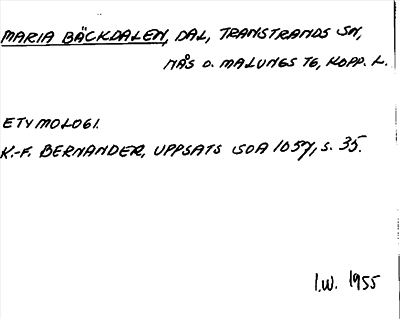 MARIA BÄCKDALEN, DAL, TRANSTRANDS SN,
NÅS O. MALUNGS TG, KOPP. L.
ETYMOLOGI.
K.-F. BERNANDER, UPPSATS SOA 1057, S. 35.
I.W. 1955